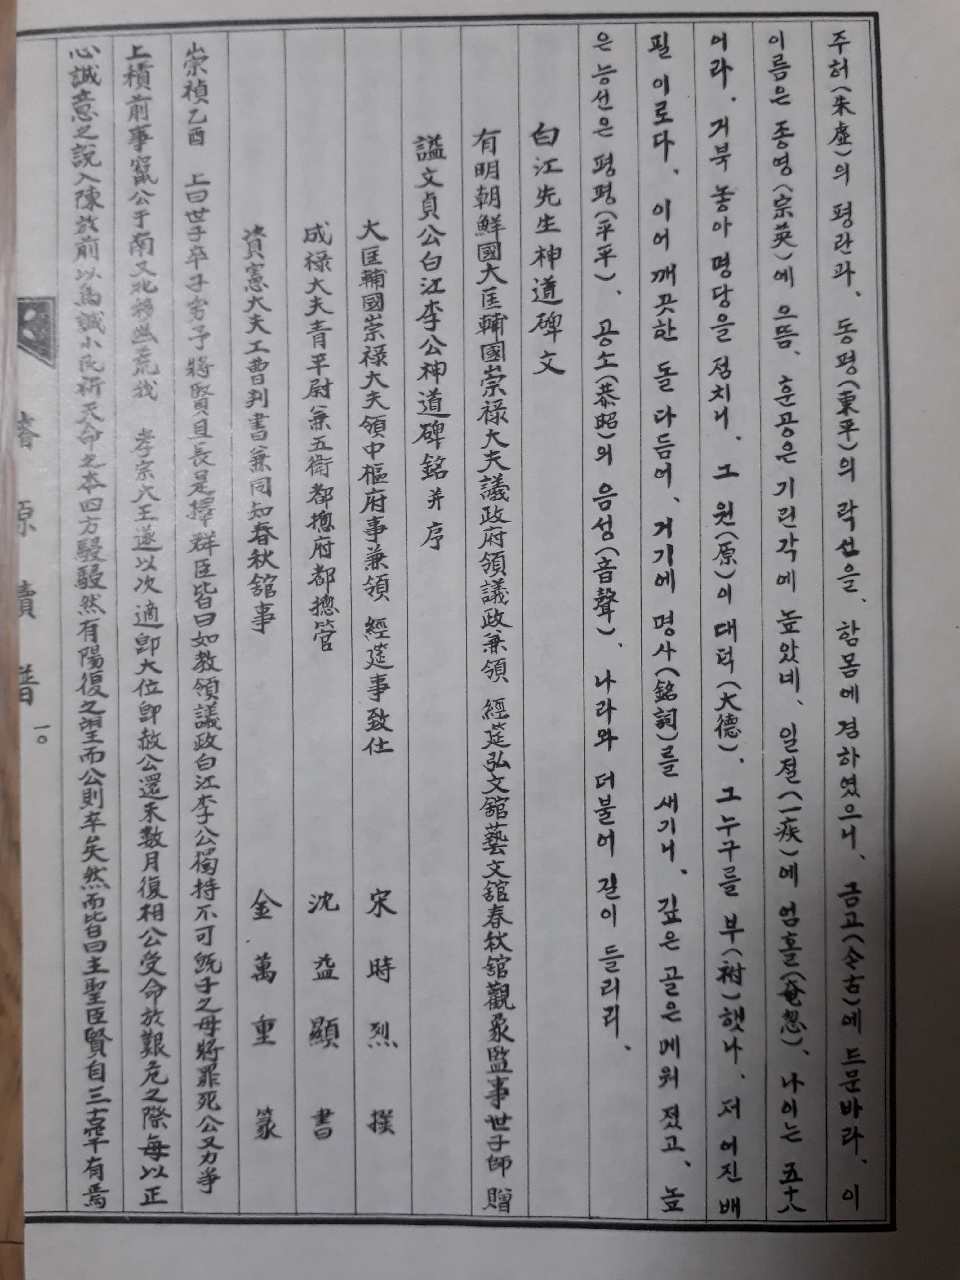 주허(朱虛)의 평란과、동평(東平)의 락선을、함몸에 겸하였으니、금고(今古)에 드문바라、이
이름은 종영(宗英)에 으뜸、훈공은 기린각에 높았네、일절(一疾)에 엄홀(奄忽)、나이는 五十八
어라. 거북 놓아 명당을 점치니、그 원(原)이 대덕(大德)、그누구를 부(祔)했나、저 어진 배
필 이로다、이어 깨끗한 돌 다듬어、거기에 명사(銘詞)를 새기니、깊은 골은 메워 졌고、높
은 능선은 평평(平平)、공소(恭昭)의 음성(音聲)、나라와 더불어 길이 들리리、
白江先生神道碑文
有明朝鮮國大匡輔國崇祿大夫議政府領議政兼領 經筵弘文舘藝文舘春秋舘觀象監事世子師 贈
諡文貞公白江李公神道碑銘并序
大匡輔國崇祿大夫領中樞府事兼領 經筵事致仕 宋時烈 撰
成祿大夫青平尉兼五衛都摠府都摠管 沈益顯 書
資憲大夫工曹判書兼同知春秋舘事 金萬重 篆
崇禎乙酉 上曰世子卒子劣予將賢且長是擇群臣皆曰如敎領議政白江李公獨持不可旣子之母將罪死公又力爭
上積前事竄公于南又北移幽荒我 孝宗大王遂以次適卽大位卽赦公還未數月復相公受命於艱危之際每以正
心誠意之說入陳於前以爲諴小民祈天命之本四方駸駸然有陽復之望而公則卒矣然而皆曰主聖臣賢自三 有焉
璿源續譜
一〇